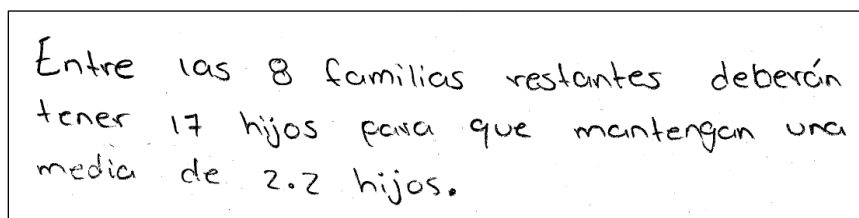 Entre las 8 familias restantes deberán
tener 17 hijos para que mantengan una
media de 2.2 hijos.